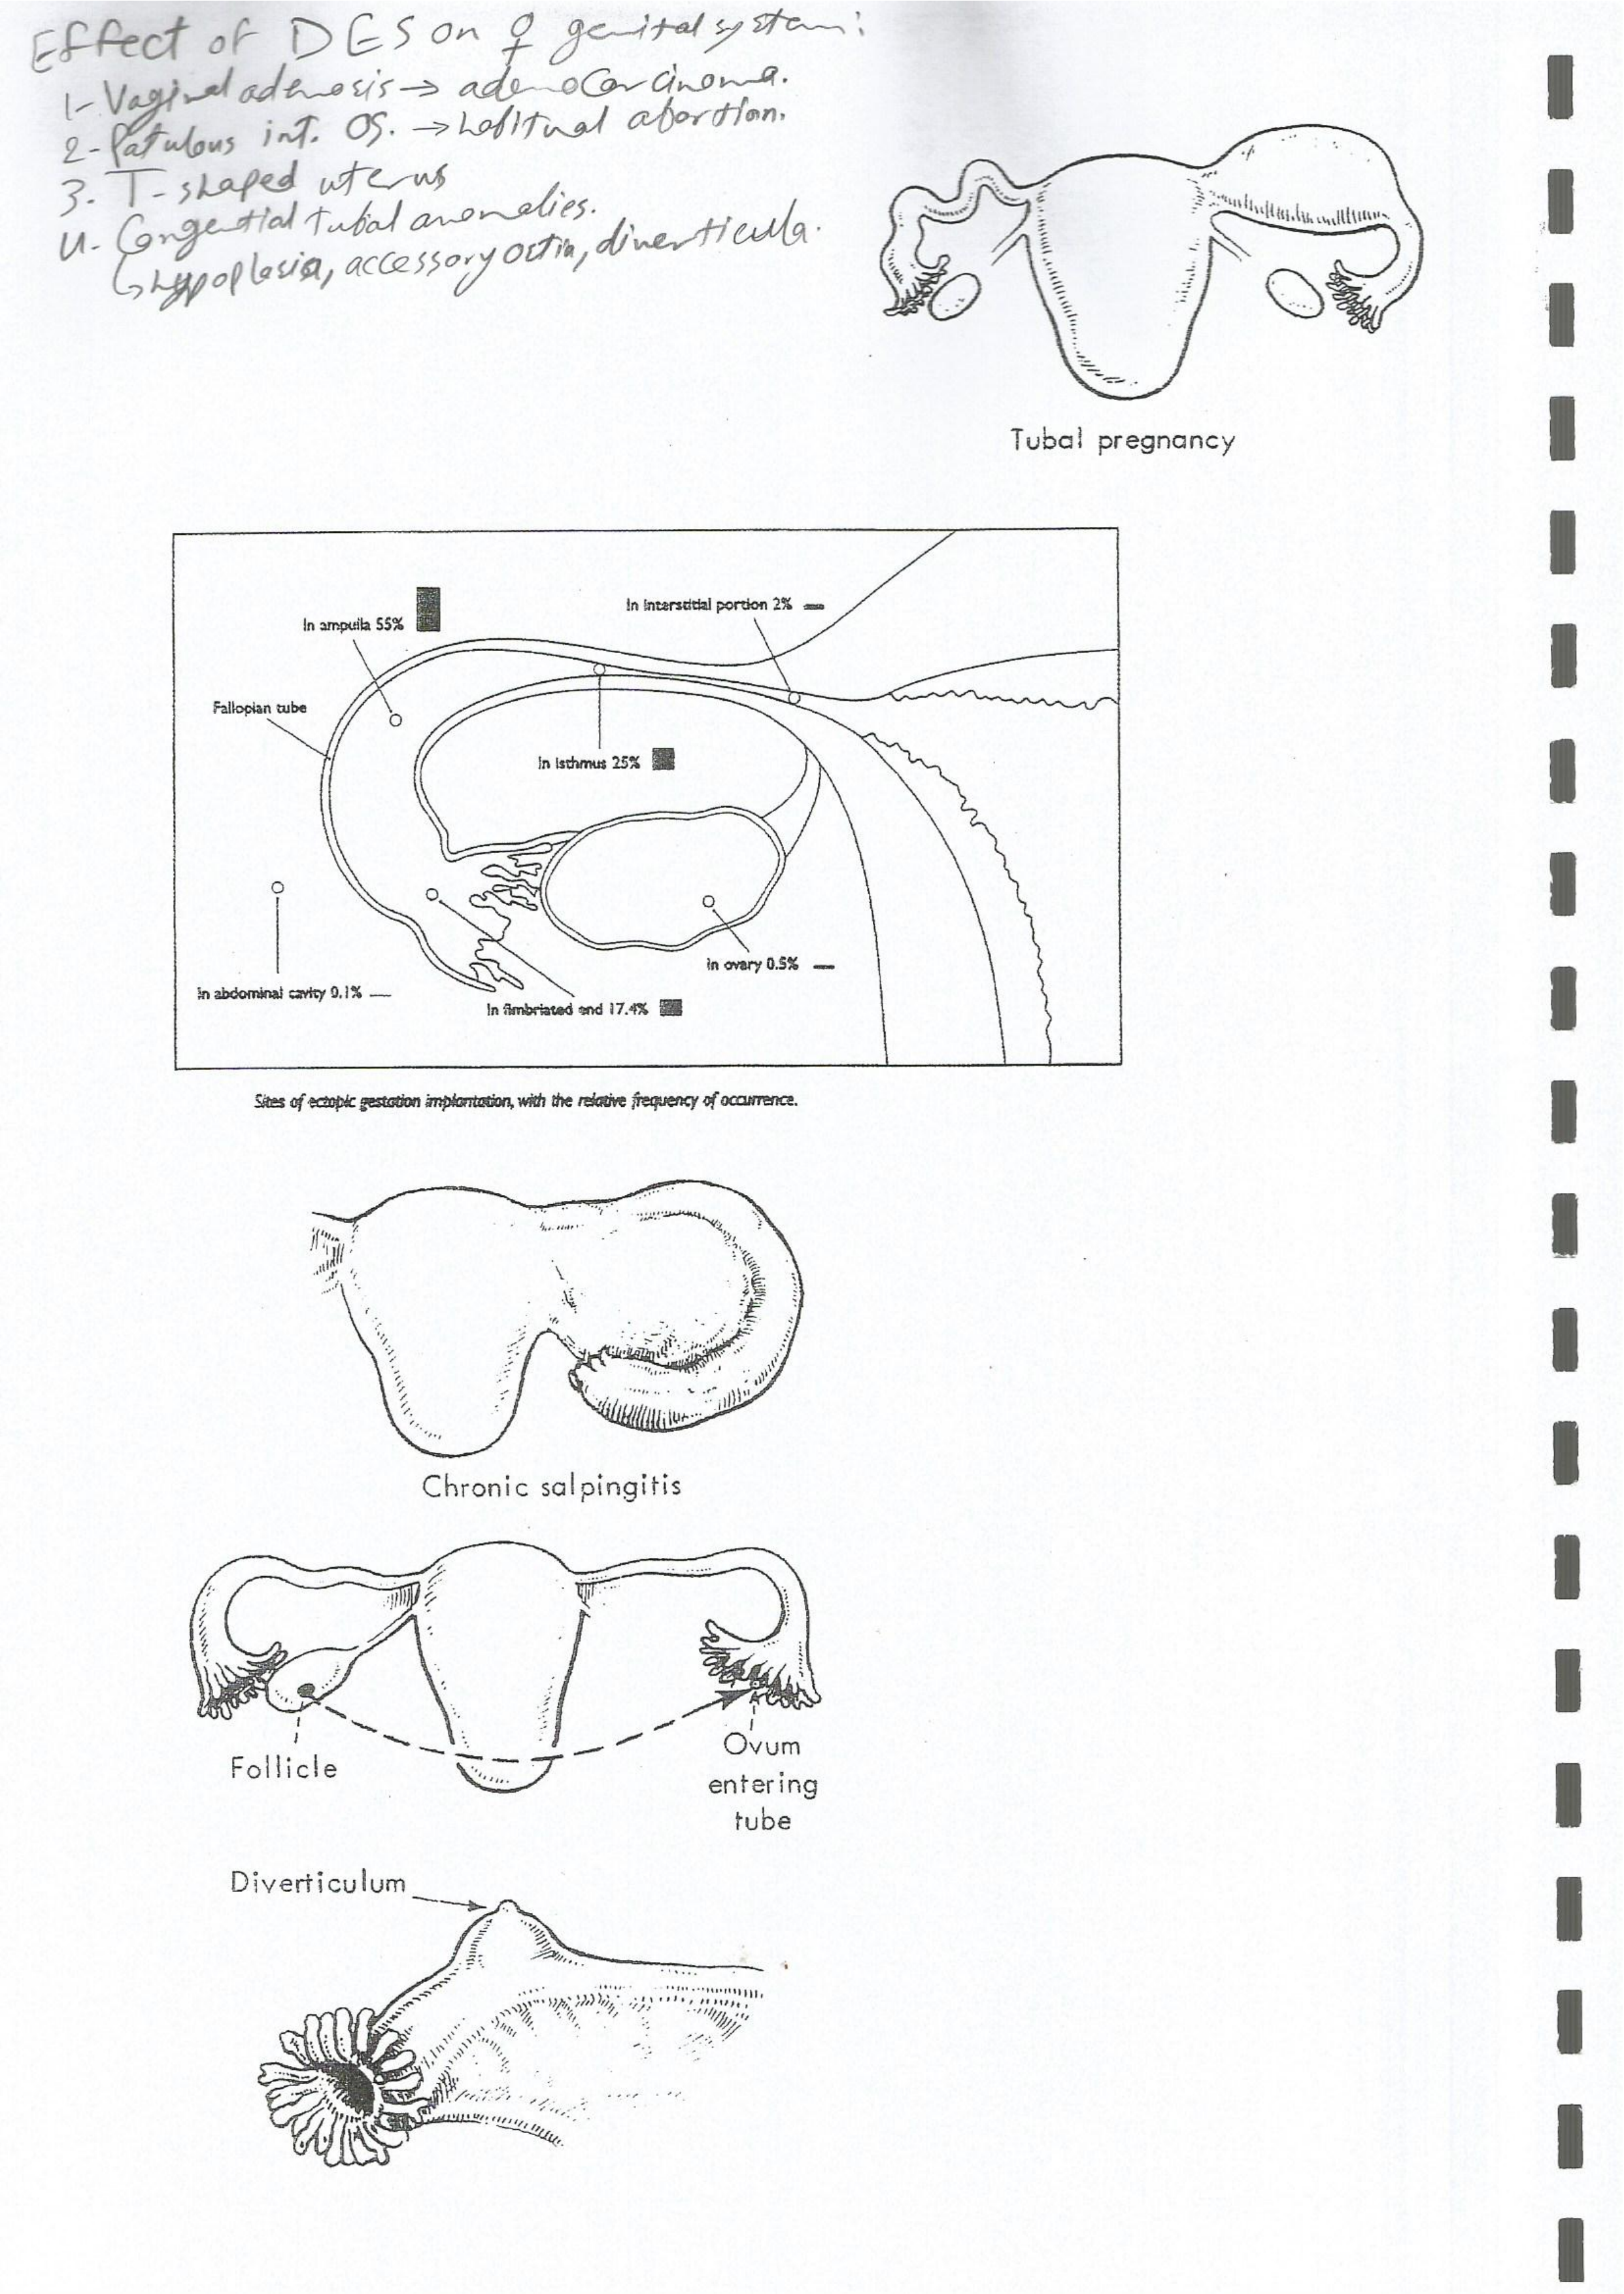 Effect of DES on ♀ genital system:
1- Vaginal adenosis → adenocarcinoma.
2- Patulous int. OS. → habitual abortion.
3. T-shaped uterus
4- Congenital tubal anomalies.
↳ hypoplasia, accessory ostia, diverticula.
Tubal pregnancy
In ampulla 55%
In interstitial portion 2%
Fallopian tube
In isthmus 25%
In ovary 0.5%
In abdominal cavity 0.1%
In fimbriated end 17.4%
Sites of ectopic gestation implantation, with the relative frequency of occurrence.
Chronic salpingitis
Follicle
Ovum
entering
tube
Diverticulum